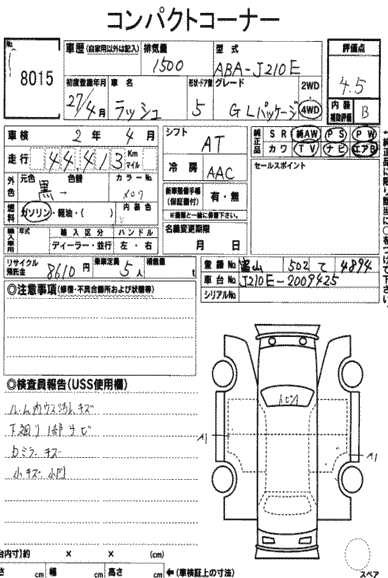 コンパクトコーナー
No. 8015
車歴(自家用以外は記入) 排気量 1500 型式 ABA-J210E 評価点 4.5
初度登録年月 27/4月 車名 ラッシュ 形状・ドア数 5 グレード GLパッケージ 2WD 4WD 内装補助評価 B
車検 2年 4月 シフト AT 純正品 SR 純AW PS PW
走行 44,413 Km マイル 冷房 AAC カワ TV ナビ エアB
セールスポイント
外色 元色 黒 色替 カラーNo. X07
新車整備手帳(保証書付) 有・無
※書類と一緒に保管下さい。
燃料 ガソリン・軽油・( ) 内装色
名義変更期限 月 日
輸入車用 年式 輸入区分 ハンドル
ディーラー・並行 左・右
リサイクル預託金 8610円 乗車定員 5人 積載量 t
登録No 富山 502 て 4894
車台No J210E-2009425
シリアルNo
◎注意事項(修復・不具合箇所および状態等)
◎検査員報告(USS使用欄)
ルーム内ウスヨゴレ キズ
下廻り 1部サビ
Dミラーキズ
小キズ 小凹
A1
A1
台内寸)約 × × (cm)
さ cm 幅 cm 高さ cm ←(車検証上の寸法)
スペア